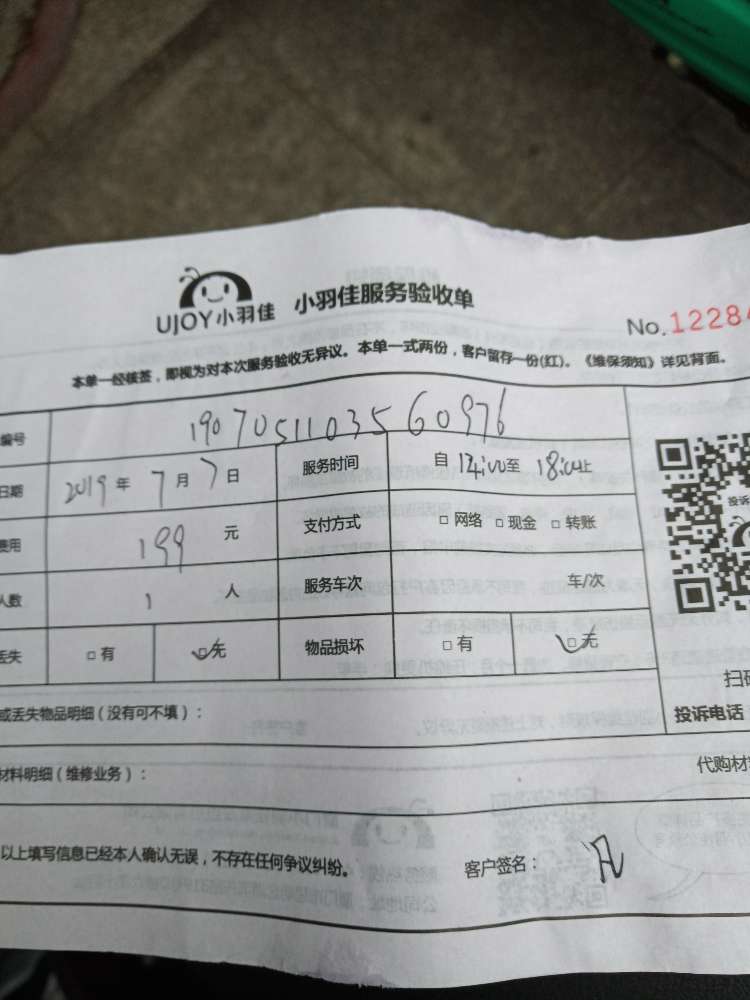 UJOY小羽佳 小羽佳服务验收单
No.12284
本单一经核签，即视为对本次服务验收无异议。本单一式两份，客户留存一份(红)。《维保须知》详见背面。
编号 1907051103560976
日期 2019 年 7 月 7 日 服务时间 自 14:00至 18:00止
费用 199 元 支付方式 □网络 □现金 □转账
人数 1 人 服务车次 车/次
丢失 □有 □无 物品损坏 □有 □无
投诉
扫码
或丢失物品明细（没有可不填）：
投诉电话
材料明细（维修业务）：
代购材
以上填写信息已经本人确认无误，不存在任何争议纠纷。 客户签名：